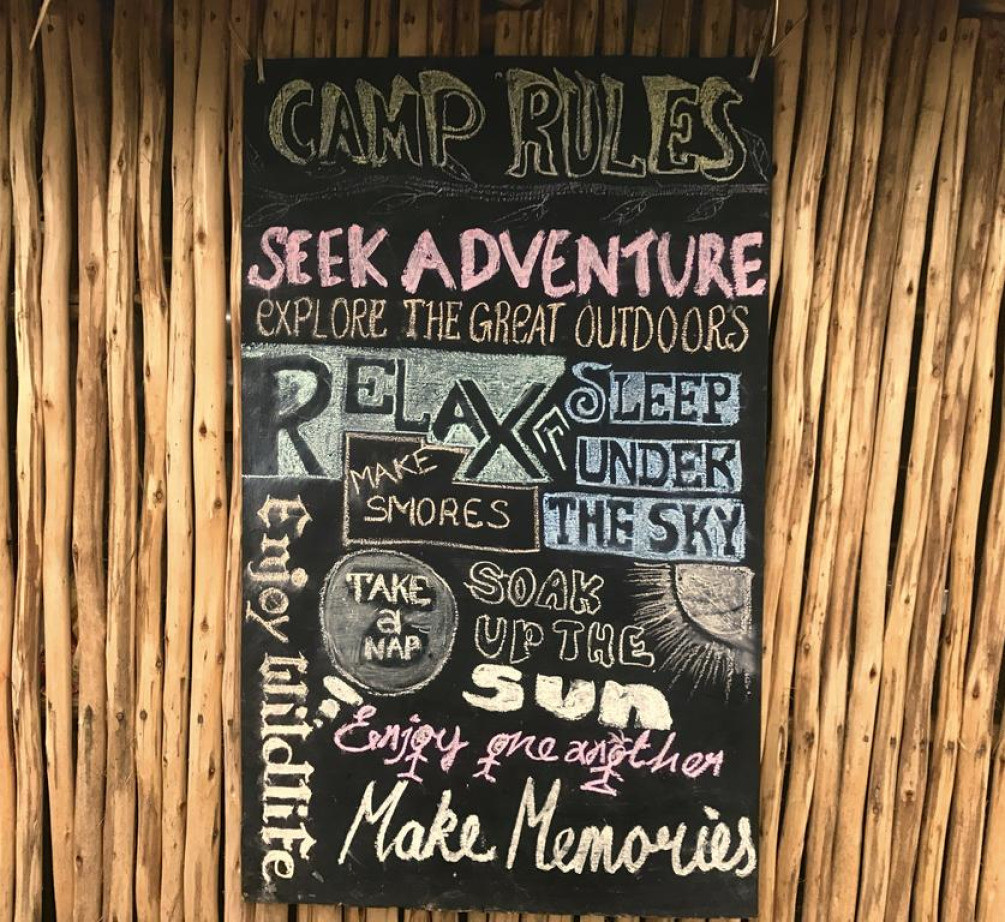 CAMP RULES
SEEK ADVENTURE
EXPLORE THE GREAT OUTDOORS
RELAX
SLEEP
UNDER
THE SKY
MAKE
SMORES
TAKE
a
NAP
SOAK
UP THE
sun
Enjoy Wildlife
Enjoy one another
Make Memories